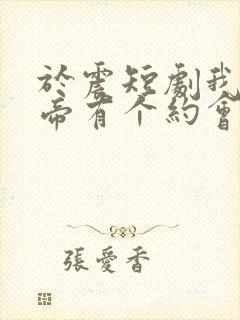 於震短劇我
帝有个約會
張愛香